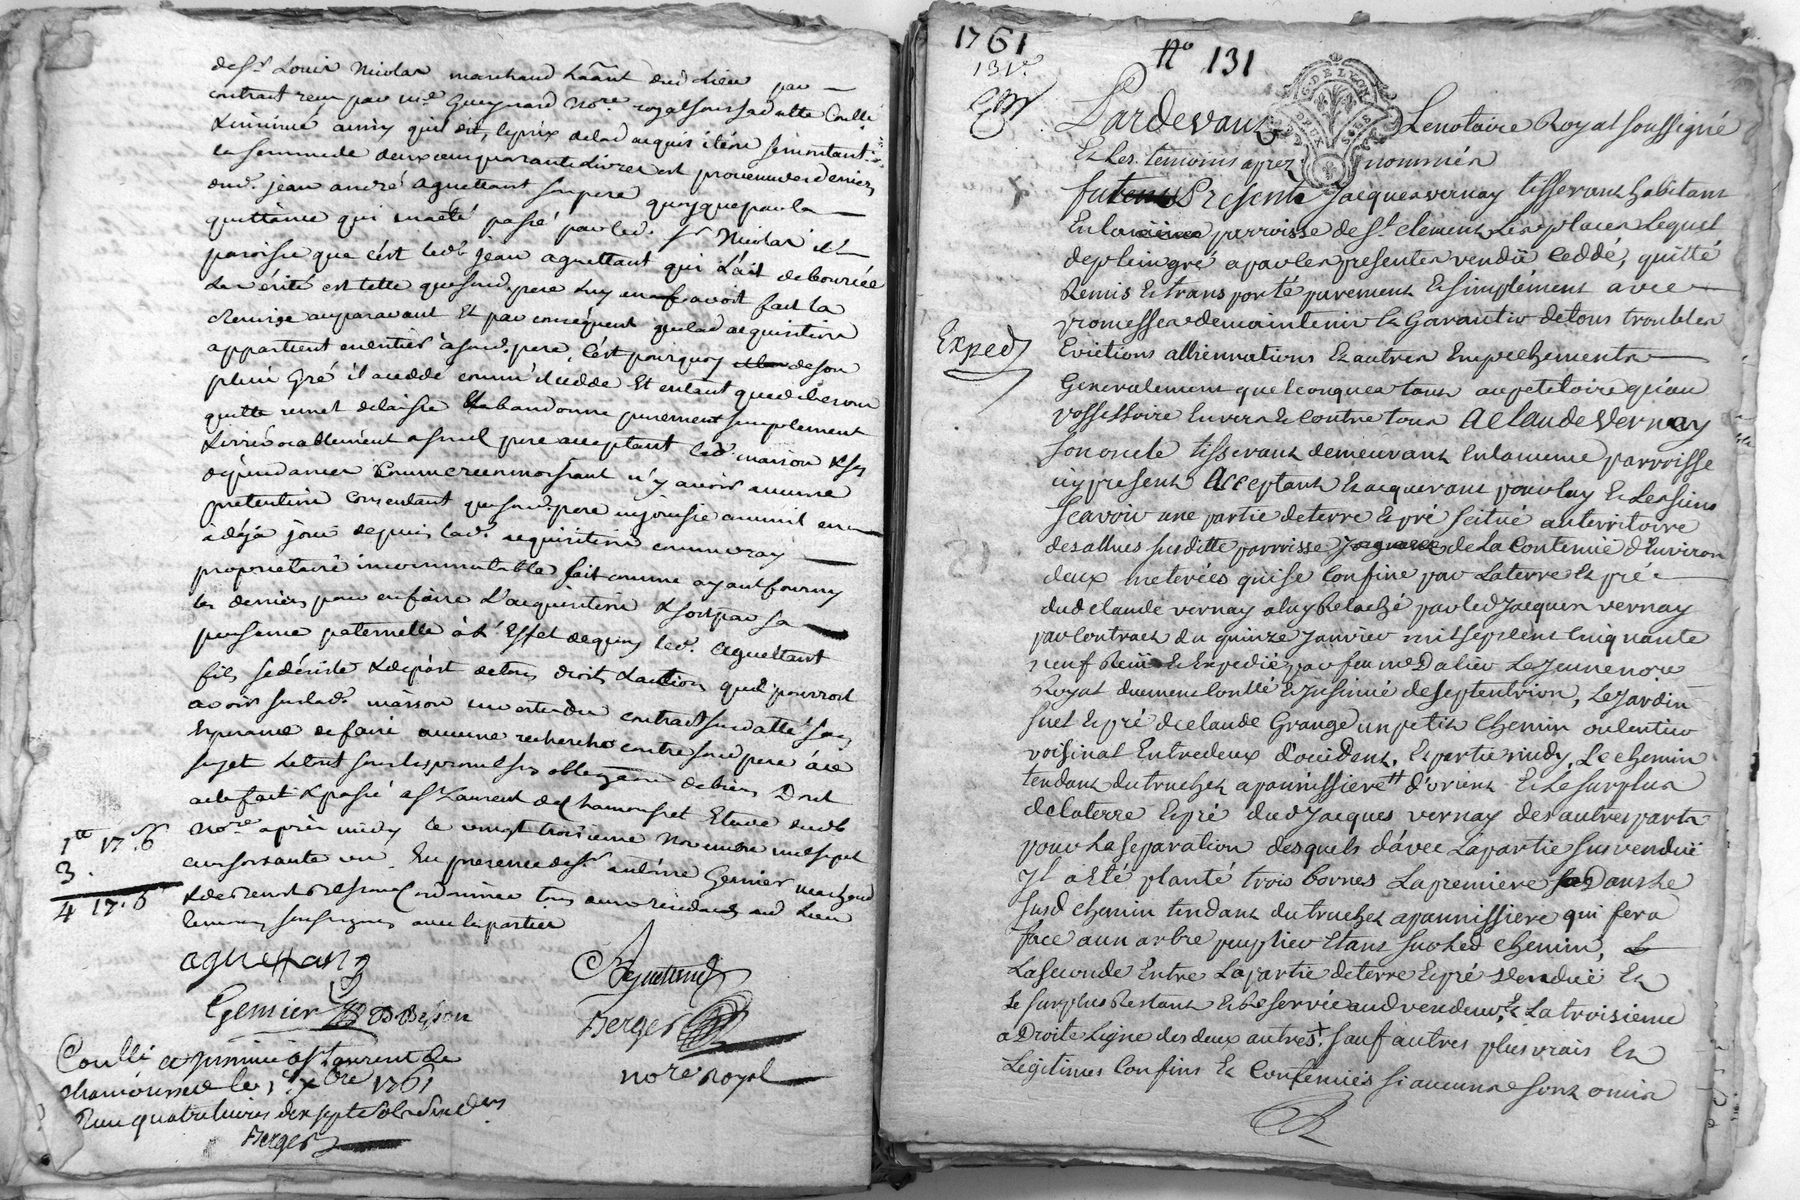 de Sr Louis Nicolas marchand haânt dud. lieu par
contract reçu par me Gueynard nore royal soussad. datte Coullé
& insinué ainsy qu'il dit, le prix de lad. acquisition se montant
la somme de deux cent quarante livres est provenue des deniers
dud. jean andré aguettant son pere quoyque par la
quittance qui en a été passé par led. sr Nicolas il
paroisse que c'est led. jean aguettant qui l'ait déboursée
la vérité est telle que sond. pere luy en avoit fait la
remise auparavant Et par conséquent que lad. acquisition
appartient en entier à sond. pere, c'est pourquoy de son
plein Gré il a ceddé comm'il cedde Et en tant que de besoin
quitte remet delaisse & abandonne purement simplement
& irrévocablement a sond. pere acceptant lad. maison & ses
dépendances comme reconnoissant n'y avoir aucune
prétention consentant que sond. pere en jouisse comme il en
a déjà joui depuis lad. acquisition comme vray
propriétaire incommutable fait comme ayant fourny
les deniers pour en faire l'acquisition & soit par sa
puissance paternelle à l'Effet de quoy led. aguettant
fils se désiste & départ de tous droits & actions qu'il pourroit
avoir sur lad. maison en vertu du contract susdatté sans
Esperance de faire aucune recherche contre sond. pere à ce
sujet le tout sous les promesses obligaon de biens Dont
acte fait & passé a St Laurent de Chamousset Etude dud.
nore après midy le vingt troisieme Novembre mil sept
cent soixante un. En présence de Sr antoine Gernier marchand
temoins soussignés avec les parties
1tt 17s 6
3.
4 17. 6
aguettant
Aguettand
Gernier
Berger
nore Royal
Coullé et insinué a St Laurent de
chamousset le 1er xbre 1761
Reçu quatre livres dix sept sols six den.
Berger
1761
131e
No 131
Exped
Pardevant Le notaire Royal soussigné
Et Les temoins aprez nommés
fut Présent Jacques vernay tisserant habitant
En la parroisse de St clement Les places Lequel
de plein gré a par les presentes vendû Ceddé, quitté
Remis Et transporté purement Et simplément avec
promesses de maintenir Et Garantir de tous troubles
Evictions alliennations Et autres Empechements
Generalement quelconques tant au petitoire qu'au
possessoire Envers Et Contre tous A Claude vernay
son oncle tisserant demeurant En la meme parroisse
icy present Acceptant Et acquerant pour luy Et Les siens
Scavoir une partie de terre Et pré scitué au territoire
des allues susditte parroisse de La Contenüe d'Environ
deux meterées qui se Confine par La terre Et pré
dud Claude vernay a luy Relaché par led Jacques vernay
par Contract du quinze Janvier mil sept Cent Cinquante
neuf Reçü Et Expedié par feu me Dalier Le Jeune nore
Royal duement Conllé Et Insinué de septentrion, Le Jardin
suel Et pré de claude Grange un petit Chemin ou sentier
voisinal Entredeux d'occident, Et partie midy, Le chemin
tendant du truchet a pannissiere d'orient Et Le surplus
de la terre Et pré dud Jacques vernay des autres parts
pour La separation desquels d'avec La partie susvendüe
Jl a été planté trois bornes La premiere dans Le
susd chemin tendant du truchet a pannissiere qui fera
face a un arbre peuplier Etant sur led chemin,
La seconde Entre La partie de terre Et pré vendüe Et
Le surplus Restant Et Reservé aud vendeur, Et La troisieme
a Droite Ligne des deux autres + sauf autres plus vrais Et
Legitimes Confins Et Contenües si aucuns sont omis